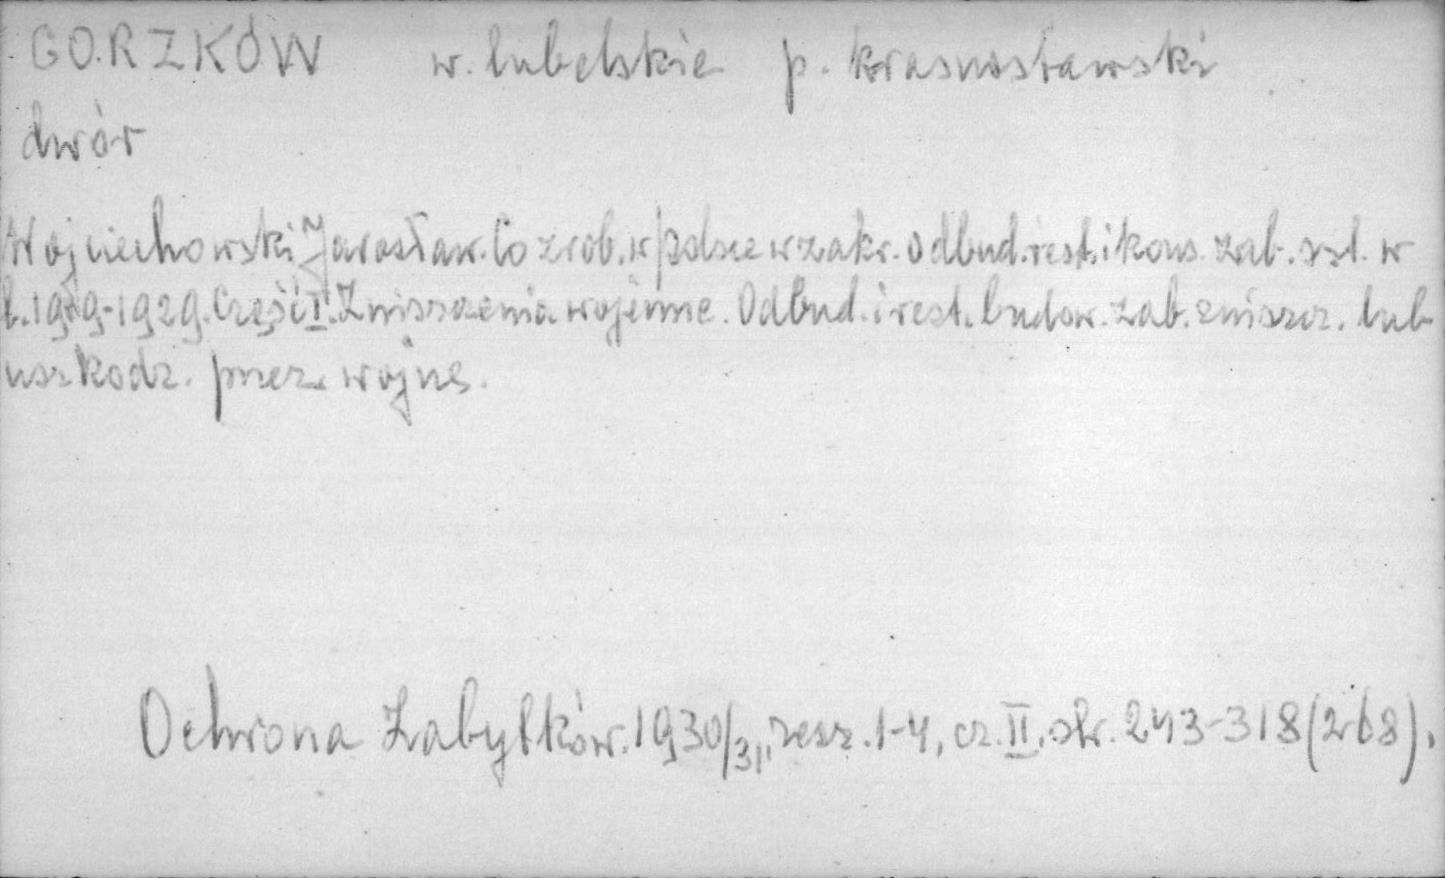 GORZKÓW w. lubelskie p. krasnostawski
dwór
Wojciechowski Jarosław. Co zrob. w Polsce w zakr. odbud. rest. i kons. zab. szt. w
l. 1919-1929. Część I. Zniszczenia wojenne. Odbud. i rest. budow. zab. zniszcz. lub
uszkodz. przez wojnę.
Ochrona Zabytków. 1930/31, zesz. 1-4, cz. II, str. 243-318 (268).